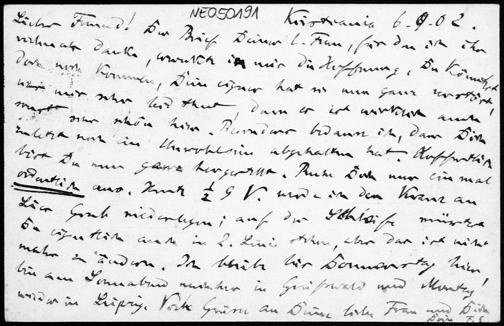 NE050191
Kristiania 6.9.02.
Lieber Freund! Der Brief Deiner l. Frau, für den ich ihr
vielmals danke, erweckte in mir die Hoffnung, Du könntest
doch noch kommen, Dein eigener hat sie nun ganz zerstört,
was mir sehr leid thut, denn es ist wirklich auch
sehr schön hier. Besonders bedaure ich, dass Dich
zuletzt noch ein Unwohlsein abgehalten hat. Hoffentlich
bist Du nun ganz hergestellt. Ruhe Dich nur einmal
ordentlich aus. Heute ½ 9 V. werde ich den Kranz an
Grab niederlegen; auf der Schleife müsstest
Du eigentlich auch in 2. Linie stehen, aber das ist nicht
mehr zu ändern. Ich bleibe bis Donnerstag hier,
bin am Sonnabend in Greifswald und Montag
wieder in Leipzig. Viele Grüsse an Deine liebe Frau und Dich
Dein